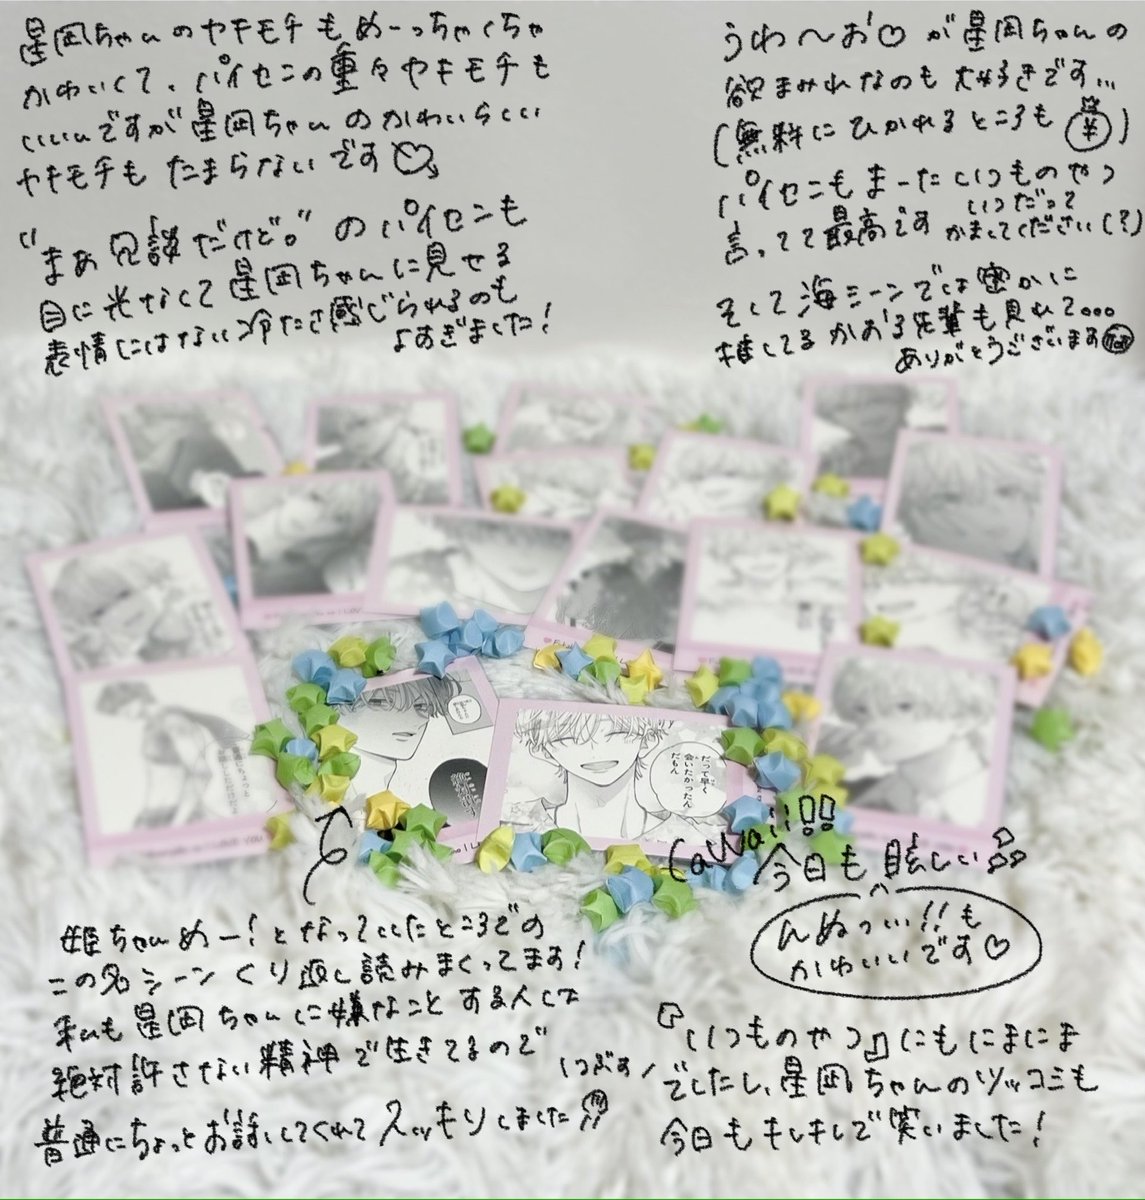 星岡ちゃんのヤキモチもめーっちゃくちゃ
かわいくて、パイセンの重々ヤキモチも
いいんですが星岡ちゃんのかわいらしい
ヤキモチもたまらないです♡
"まぁ冗談だけど。"のパイセンも
目に光なくて星岡ちゃんに見せる
表情にはない冷たさ感じられるのも
よすぎました!
うわ〜お♡が星岡ちゃんの
欲まみれなのも大好きです...
(無料にひかれるところも ¥)
パイセンもまーたいつものやつ
言ってて最高です いつだって
かましてください(?)
そして海シーンでは密かに
推してるかおる先輩も見れて...
ありがとうございます
だって早く
会いたかったん
だもん
Cawaii!!
今日も眩しい
んぬっい!!も
かわいいです♡
姫ちゃんめー!となっていたところでの
この名シーンくり返し読みまくってます!
私も星岡ちゃんに嫌なことする人して
絶対許さない精神で生きてるので
つぶす!
普通にちょっとお話してくれてスッキリしました!!
『いつものやつ』にもにまにま
でしたし、星岡ちゃんのツッコミも
今日もキレキレで笑いました!